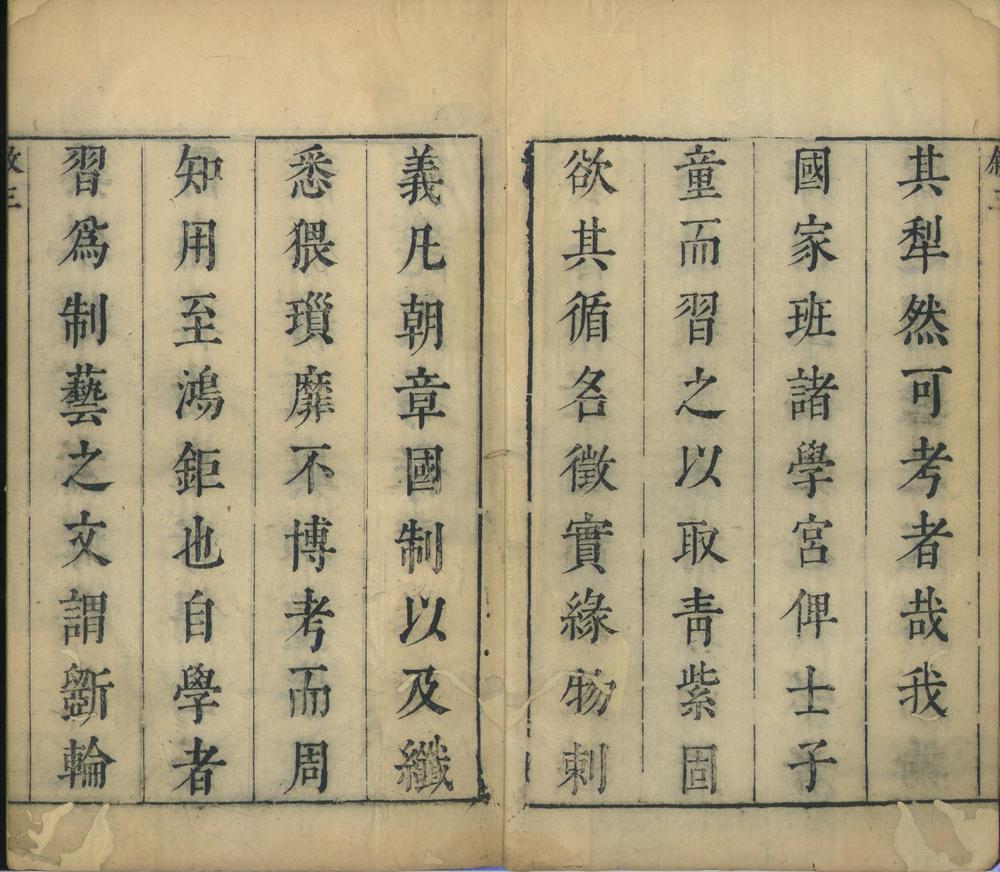 其犁然可考者哉我
國家班諸學宮俾士子
童而習之以取青紫固
欲其循名徵實緣物刺
義凡朝章國制以及纖
悉猥瑣靡不博考而周
知用至鴻鉅也自學者
習爲制藝之文謂斲輪